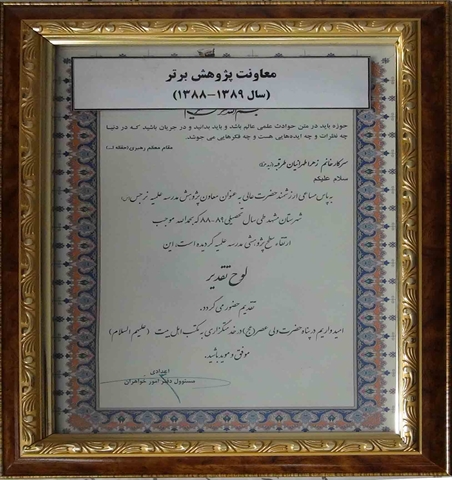 معاونت پژوهش برتر
(سال ۱۳۸۹-۱۳۸۸)
حوزه باید در متن حوادث علمی عالم باشد و باید بدانید و در جریان باشید که در دنیا
چه نظرات و چه ایده‌هایی هست و چه فکرهایی می جوشد.
مقام معظم رهبری
سرکار خانم زهرا طهرانیان طرقبه
سلام علیکم
به پاس مساعی ارزشمند حضرت عالی به عنوان معاون پژوهش مدرسه علمیه نرجس
شهرستان مشهد طی سال تحصیلی ۸۹-۸۸ که بحمدالله موجب
ارتقاء سطح پژوهشی مدرسه علمیه گردیده است؛ این
لوح تقدیر
تقدیم حضور می گردد.
امیدواریم در پناه حضرت ولی عصر (عج) در خدمتگزاری به مکتب اهل بیت (علیهم السلام)
موفق و موید باشید.
اعدادی
مسئوول دفتر امور خواهران